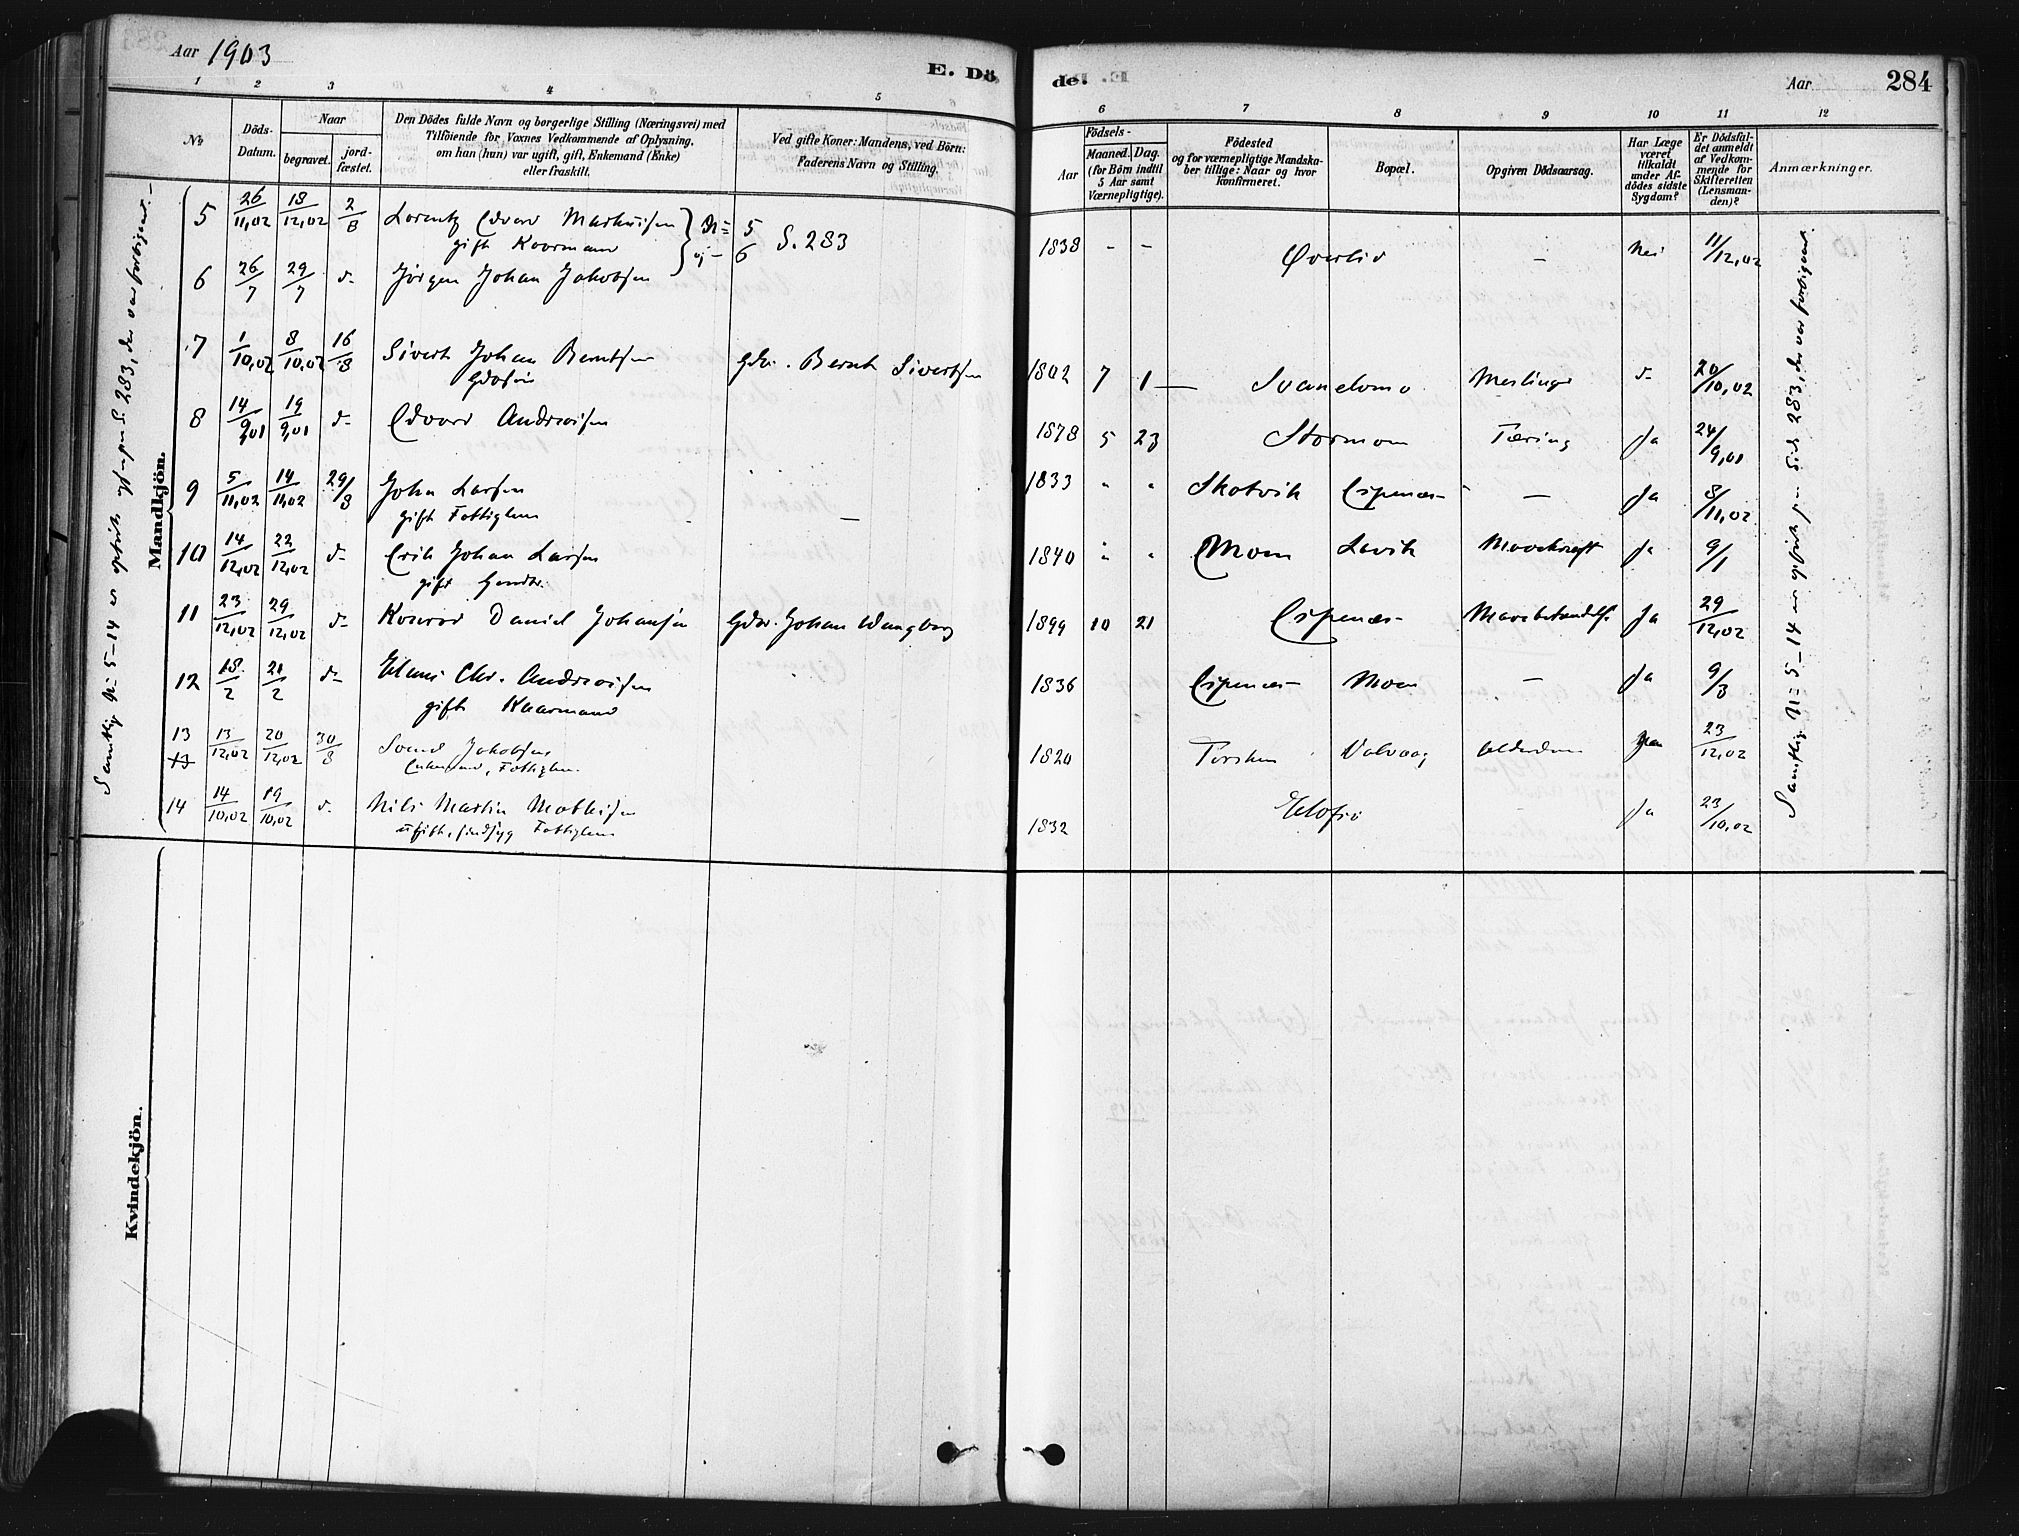 Aar 1903
E. Dö
1 2 3 4 5
No
Döds-Datum.
Naar
begravet.
jord-fæstet.
Den Dödes fulde Navn og borgerlige Stilling (Næringsvei) med
Tilföiende for Voxnes Vedkommende af Oplysning,
om han (hun) var ugift, gift, Enkemand (Enke)
eller fraskilt.
Ved gifte Koner: Mandens, ved Börn:
Faderens Navn og Stilling.
Mandkjön.
5 26/11,02 18/12,02 2/8 Lorentz Edvard Markusen
gift Kaarmand
5
6 S. 283
6 26/7 29/7 d- Jørgen Johan Jakobsen
7 1/10,02 8/10,02 16/8 Sivert Johan Berntsen Gdbr. Bernt Sivertsen
8 14/9,01 19/9,01 d- Edvard Andreasen
9 5/11,02 14/11,02 29/8 John Larsen
gift Fattiglem
10 14/12,02 22/12,02 d- Erik Johan Larsen
gift Gaardbr.
11 23/12,02 29/12,02 d- Konrad Daniel Johansen Gdbr. Johan Wangberg
12 18/2 21/2 d- Hans Chr. Andreasen
gift Kaarmand
13 13/12,02 20/12,02 30/8 Jakobsen
Enkemand, Fattiglem
14 14/10,02 19/10,02 d- Nils Martin Mathisen
ugift, sindsyg Fattiglem
Kvindekjön.
de.
Aar
284
6 7 8 9 10 11 12
Födsels-
Aar
Maaned. Dag.
(for Börn indtil
5 Aar samt
Værnepligtige).
Födested
og for værnepligtige Mandska-
ber tillige: Naar og hvor
konfirmeret.
Bopæl.
Opgiven Dödsaarsag.
Har Læge
været
tilkaldt
under Af-
dödes sidste
Sygdom?
Er Dödsfal-
det anmeldt
af Vedkom-
mende for
Skifteretten
(Lensman-
den)?
Anmærkninger.
1838 - - Øverlid - Nei 11/12,02
1802 7 1 Svanelmo d- 20/10,02
1878 5 23 Stormoen Tæring Ja 24/9,01
1833 " " Skotvik Espenæs - Ja 8/11,02
1840 " " Moen Lavik Mavekræft Ja 9/1
1899 10 21 Espenæs Ja 29/12,02
1836 Espenæs Moen - Ja 9/3
1820 Torsken Valvaag Alderdom 23/12,02
1832 Ja 23/10,02